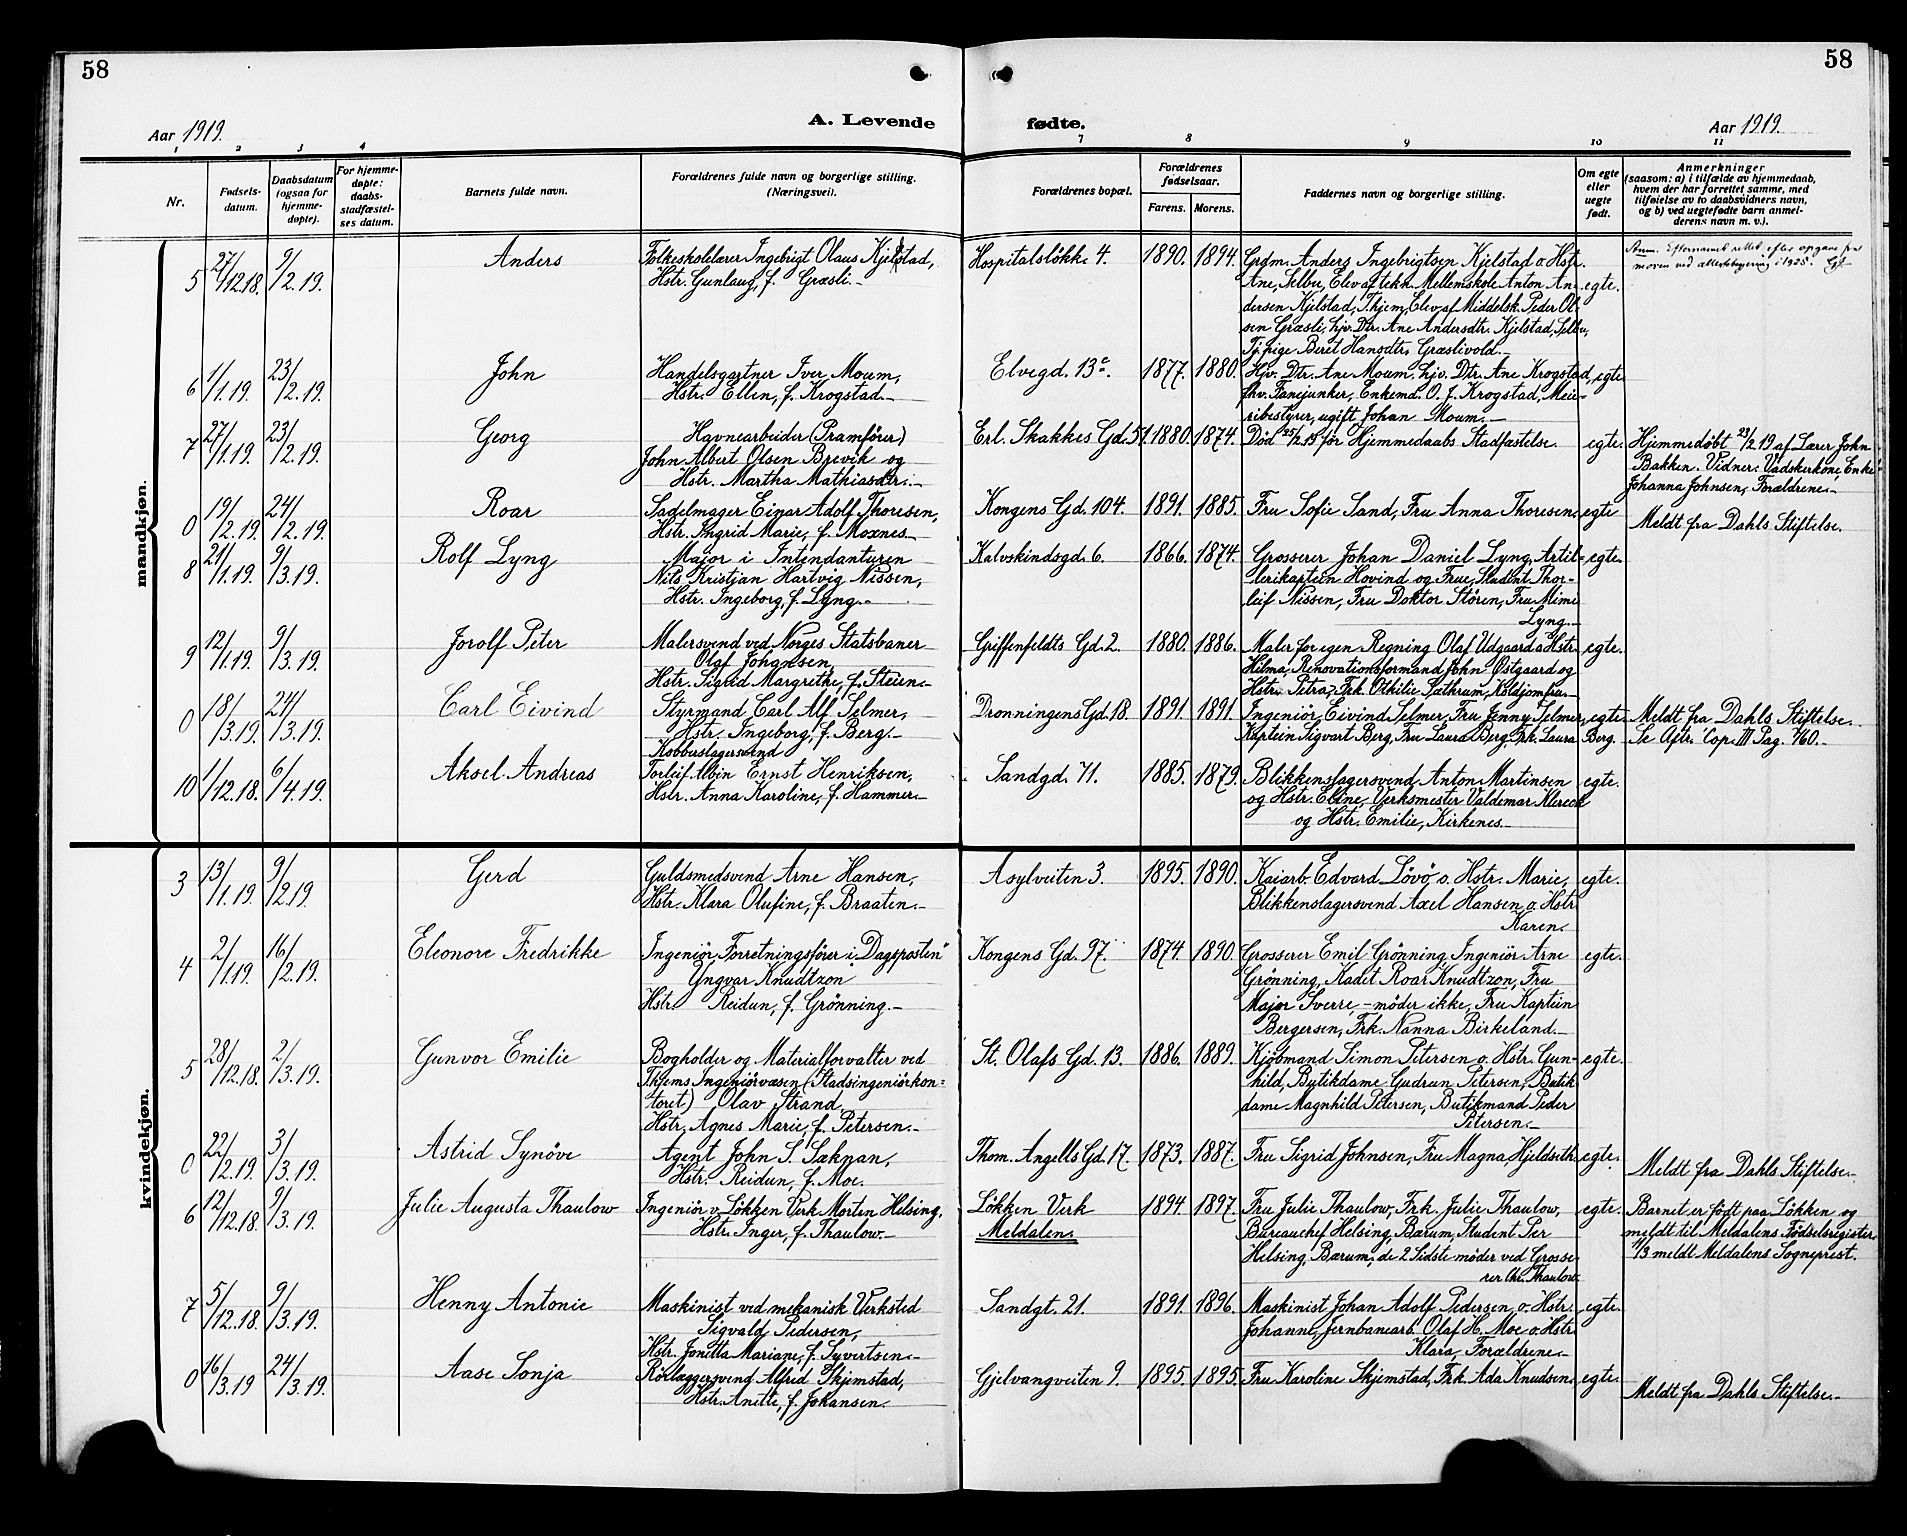 58
58
A. Levende
fødte.
Aar 1919.
Aar 1919.
1 2 3 4 7 8 9 10 11
Nr.
Fødsels-
datum.
Daabsdatum
(ogsaa for
hjemme-
døpte).
For hjemme-
døpte:
daabs-
stadfæstel-
ses datum.
Barnets fulde navn.
Forældrenes fulde navn og borgerlige stilling.
(Næringsvei).
Forældrenes bopæl.
Forældrenes
fødselsaar.
Farens. Morens.
Faddernes navn og borgerlige stilling.
Om egte
eller
uegte
født.
Anmerkninger
(saasom: a) i tilfælde av hjemmedaab,
hvem der har forrettet samme, med
tilføielse av to daabsvidners navn,
og b) ved uegtefødte barn anmel-
derens navn m. v.).
mandkjøn.
5 27/12.18. 9/2.19. Anders
Folkeskolelærer Ingebrigt Olaus Kjelstad,
Hstr. Gunlaug, f. Græsli.-
Hospitalsløkk. 4. 1890. 1894.
Grdm. Anders Ingebrigtsen Kjelstad o. Hstr.
Ane, Selbu, Elev af tekn. Mellemskole Anton An-
dersen Kjelstad, Thjem, Elev af Middelsk. Peder Ol-
sen Græsli, hjv. Dtr. Ane Andersdtr. Kjelstad, Selbu,
Tj.pige Beret Hansdtr. Græslivold.-
egte.
Anm. Efternavnet rettet efter opgave fra
moren ved attestbegjæring i 1925.
6 1/1.19. 23/2.19. John
Handelsgartner Iver Moum,
Hstr. Ellen, f. Krogstad.-
Elvegd. 13c. 1877. 1880.
Hjv. Dtr. Ane Moum, hjv. Dtr. Ane Krogstad,
fhv. Fanejunker, Enkemd. O. J. Krogstad, Mei-
eribestyrer, ugift Johan Moum.-
egte.
7 27/1.19. 23/2.19. Georg
Havnearbeider (Pramfører)
John Albert Olsen Brevik og
Hstr. Martha Mathiasdtr.-
Erl. Skakkes Gd. 51. 1880. 1874.
Død 25/2 19 før Hjemmedaabs Stadfæstelse.
egte.
Hjemmedøbt 23/2 19 af Lærer John
Bakken. Vidner: Vadskerkone, Enke
Johanna Johnsen, Forældrene.-
0 19/2.19. 24/2.19. Roar
Sadelmager Einar Adolf Thoresen,
Hstr. Ingrid Marie, f. Moxnes.-
Kongens Gd. 104. 1891. 1885.
Fru Sofie Sand, Fru Anna Thoresen.
egte
Meldt fra Dahls Stiftelse.
8 21/1.19. 9/3.19. Rolf Lyng
Major i Intendanturen
Nils Kristjan Hartvig Nissen,
Hstr. Ingeborg, f. Lyng.-
Kalvskindsgd. 6. 1866. 1874.
Grosserer Johan Daniel Lyng, Artil-
lerikaptein Hovind og Frue, Student Thor-
leif Nissen, Fru Doktor Stören, Fru Mimi
Lyng.-
egte.
9 12/1.19. 9/3.19. Jorolf Peter
Malersvend ved Norges Statsbaner
Olaf Johansen,
Hstr. Sigrid Margrethe, f. Steien.-
Griffenfeldts Gd. 2. 1880. 1886.
Maler for egen Regning Olaf Udgaard o. Hstr.
Hilma, Renovationsformand John Østgaard og
Hstr. Petra, Frk. Othilie Sæthrum, Koldjomfru.-
egte.
0 18/3.19. 24/3.19. Carl Eivind
Styrmand Carl Alf Selmer,
Hstr. Ingeborg, f. Berg.-
Dronningens Gd. 18. 1891. 1891.
Ingeniør Eivind Selmer, Fru Jenny Selmer,
Kaptein Sigvart Berg, Fru Laura Berg, Frk. Laura Berg.
egte.
Meldt fra Dahls Stiftelse.
Se Aftr. Cop. III Pag. 460.-
10 1/12.18. 6/4.19. Aksel Andreas
Kobberslagersvend
Torleif Albin Ernst Henriksen,
Hstr. Anna Karoline, f. Hammer.-
Sandgd. 71. 1885. 1879.
Blikkenslagersvend Anton Martinsen
og Hstr. Eline, Verksmester Valdemar Klereck
og Hstr. Emilie, Kirkenes.-
egte.
kvindekjøn.
3 13/1.19. 9/2.19 Gerd
Guldsmedsvend Arne Hansen,
Hstr. Klara Olufine, f. Braaten.-
Asylveiten 3. 1895. 1890.
Kaiarb. Edvard Lövö o. Hstr. Marie,
Blikkenslagersvend Axel Hansen o. Hstr.
Karen.
egte.
4 2/1.19. 16/2.19. Eleonore Fredrikke
Ingeniør, Forretningsfører i „Dagsposten"
Yngvar Knudtzon
Hstr. Reidun, f. Grönning.-
Kongens Gd. 97. 1874. 1890.
Grosserer Emil Grönning, Ingeniør Arne
Grönning, Kadet Roar Knudtzon, Fru
Major Sverre,- möder ikke, Fru Kaptein
Bergersen, Frk. Nanna Birkeland.-
egte.
5 28/12.18. 2/3.19. Gunvor Emilie
Bogholder og Materialforvalter ved
Thjems Ingeniørvæsen (Stadsingeniørkon-
toret) Olav Strand,
Hstr. Agnes Marie, f. Petersen.-
St. Olafs Gd. 13. 1886. 1889.
Kjøbmand Simon Petersen o. Hstr. Gun-
hild, Butikdame Gudrun Petersen, Butik
dame Magnhild Petersen, Butikmand Peder
Petersen.-
egte.
0 22/2.19. 3/3.19. Astrid Synöve
Agent John S. Saknan,
Hstr. Reidun, f. Moe.
Thom. Angells Gd. 17. 1873. 1887.
Fru Sigrid Johnsen, Fru Magna Hjeldseth.
egte.
Meldt fra Dahls Stiftelse.-
6 12/12.18. 9/3.19. Julie Augusta Thaulow
Ingeniør v. Løkken Verk Morten Helsing,
Hstr. Inger, f. Thaulow.-
Løkken Verk
Meldalen.
1894. 1897.
Fru Julie Thaulow, Frk. Julie Thaulow,
Bureauchef Helsing, Bærum, Student Per
Helsing, Bærum, de 2 Sidste möder ved Grosse-
rer Chr. Thaulow.
egte.
Barnet er født paa Løkken og
meldt til Meldalens Fødselsregister
11/3 meldt Meldalens Sogneprest.
7 5/12.18. 9/3.19. Henny Antonie
Maskinist ved mekanisk Verksted
Sigvald Pedersen,
Hstr. Jonetta Mariane, f. Syvertsen.-
Sandgt. 21. 1891. 1896.
Maskinist Johan Adolf Pedersen o. Hstr.
Johanne, Jernbanearb. Olaf H. Moe o. Hstr.
Klara, Forældrene.-
egte.
0 16/3.19 24/3.19. Aase Sonja
Rørlæggersvend Alfred Skjemstad,
Hstr. Anette, f. Johansen.
Gjelvangveiten 9. 1895. 1895.
Fru Karoline Skjemstad, Frk. Ada Knudsen.
egte.
Meldt fra Dahls Stiftelse.-